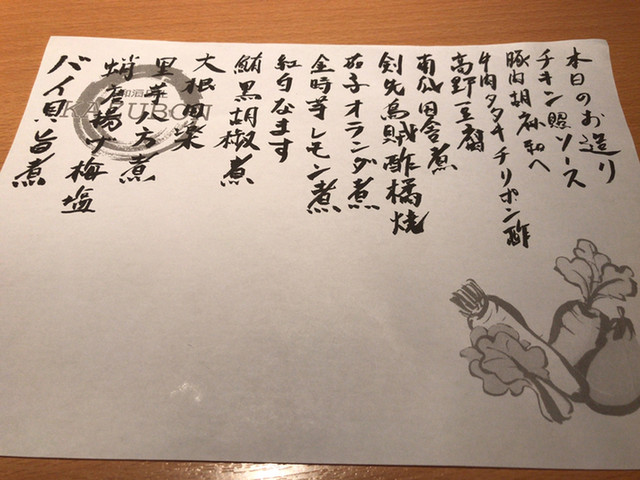 本日のお造り
チキン照ソース
豚肉胡麻和へ
牛肉タタキチリポン酢
高野豆腐
南瓜田舎煮
剣先烏賊酢橘焼
茄子オランダ煮
金時芋レモン煮
紅白なます
鮪黒胡椒煮
大根田楽
里芋八方煮
蛸唐揚げ梅塩
バイ貝旨煮